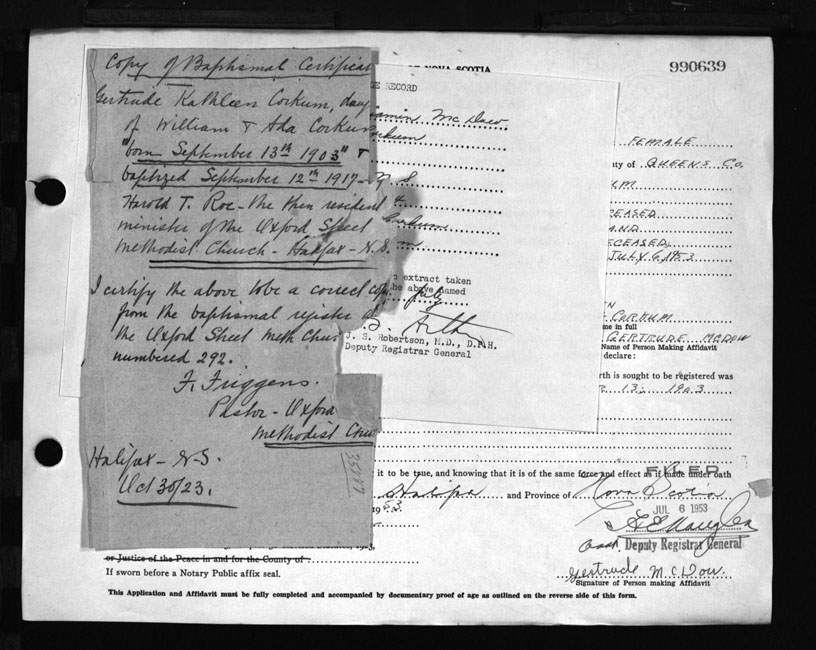 Copy of Baptismal Certificat
Gertrude Kathleen Corkum, daug
of William & Ada Corkum
"born September 13th 1903" &
baptized September 12th 1917 -
Harold T. Roe - the then resident
minister of the Oxford Street
Methodist Church - Halifax - N.S.
I certify the above to be a correct copy
from the baptismal register of
the Oxford Street Meth Church
numbered 292.
F. Friggens.
Pastor - Oxford
Methodist Church
Halifax - N-S.
Oct 30/23.
NOVA SCOTIA
990639
RECORD
Mc Daw
N S
extract taken
he above named
July
J. S. Robertson, M.D., D.P.H.
Deputy Registrar General
FEMALE
ty of QUEENS CO.
UM
EASED
AND
DECEASED
JULY 6, 1953
CORKUM
me in full
GERTRUDE MCDOW
Name of Person Making Affidavit
declare :
rth is sought to be registered was
13, 1903
it to be true, and knowing that it is of the same force and effect as if made under oath
FILED
Halifax and Province of Nova Scotia
JUL 6 1953
Deputy Registrar General
or Justice of the Peace in and for the County of
If sworn before a Notary Public affix seal.
Gertrude McDow.
Signature of Person making Affidavit
This Application and Affidavit must be fully completed and accompanied by documentary proof of age as outlined on the reverse side of this form.